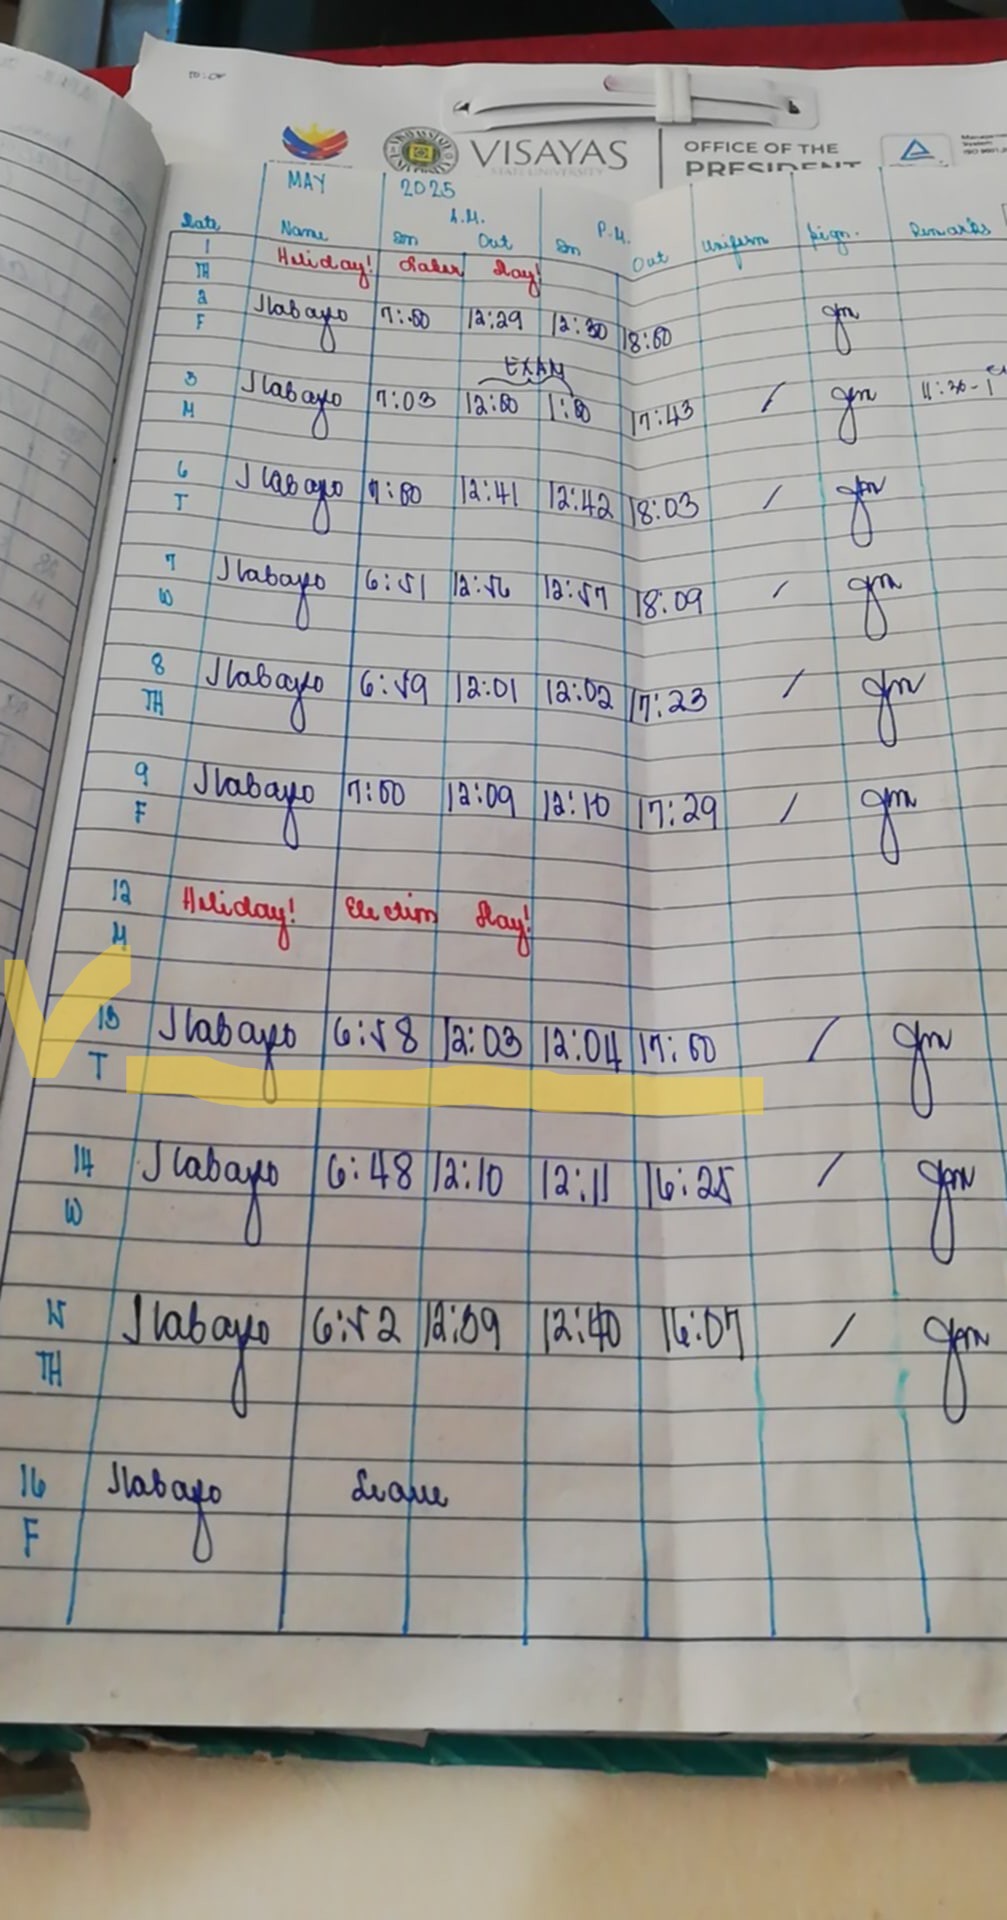 VISAYAS OFFICE OF THE
STATE UNIVERSITY PRESIDENT
MAY 2025
A.M. P.M.
Date Name In Out In Out Uniform Sign. Remarks
1 Holiday! Labor Day!
TH
2 Ilabayo 7:00 12:29 12:30 18:00
F
EXAM
5 Ilabayo 7:03 12:00 1:00 17:43 / 11:30-1
M
6 Ilabayo 7:00 12:41 12:42 18:03 /
T
7 Ilabayo 6:51 12:56 12:57 18:09 /
W
8 Ilabayo 6:59 12:01 12:02 17:23 /
TH
9 Ilabayo 7:00 12:09 12:10 17:29 /
F
12 Holiday! Election Day!
M
13 Ilabayo 6:58 12:03 12:04 17:00 /
T
14 Ilabayo 6:48 12:10 12:11 16:25 /
W
15 Ilabayo 6:52 12:09 12:40 16:07 /
TH
16 Ilabayo Leave
F